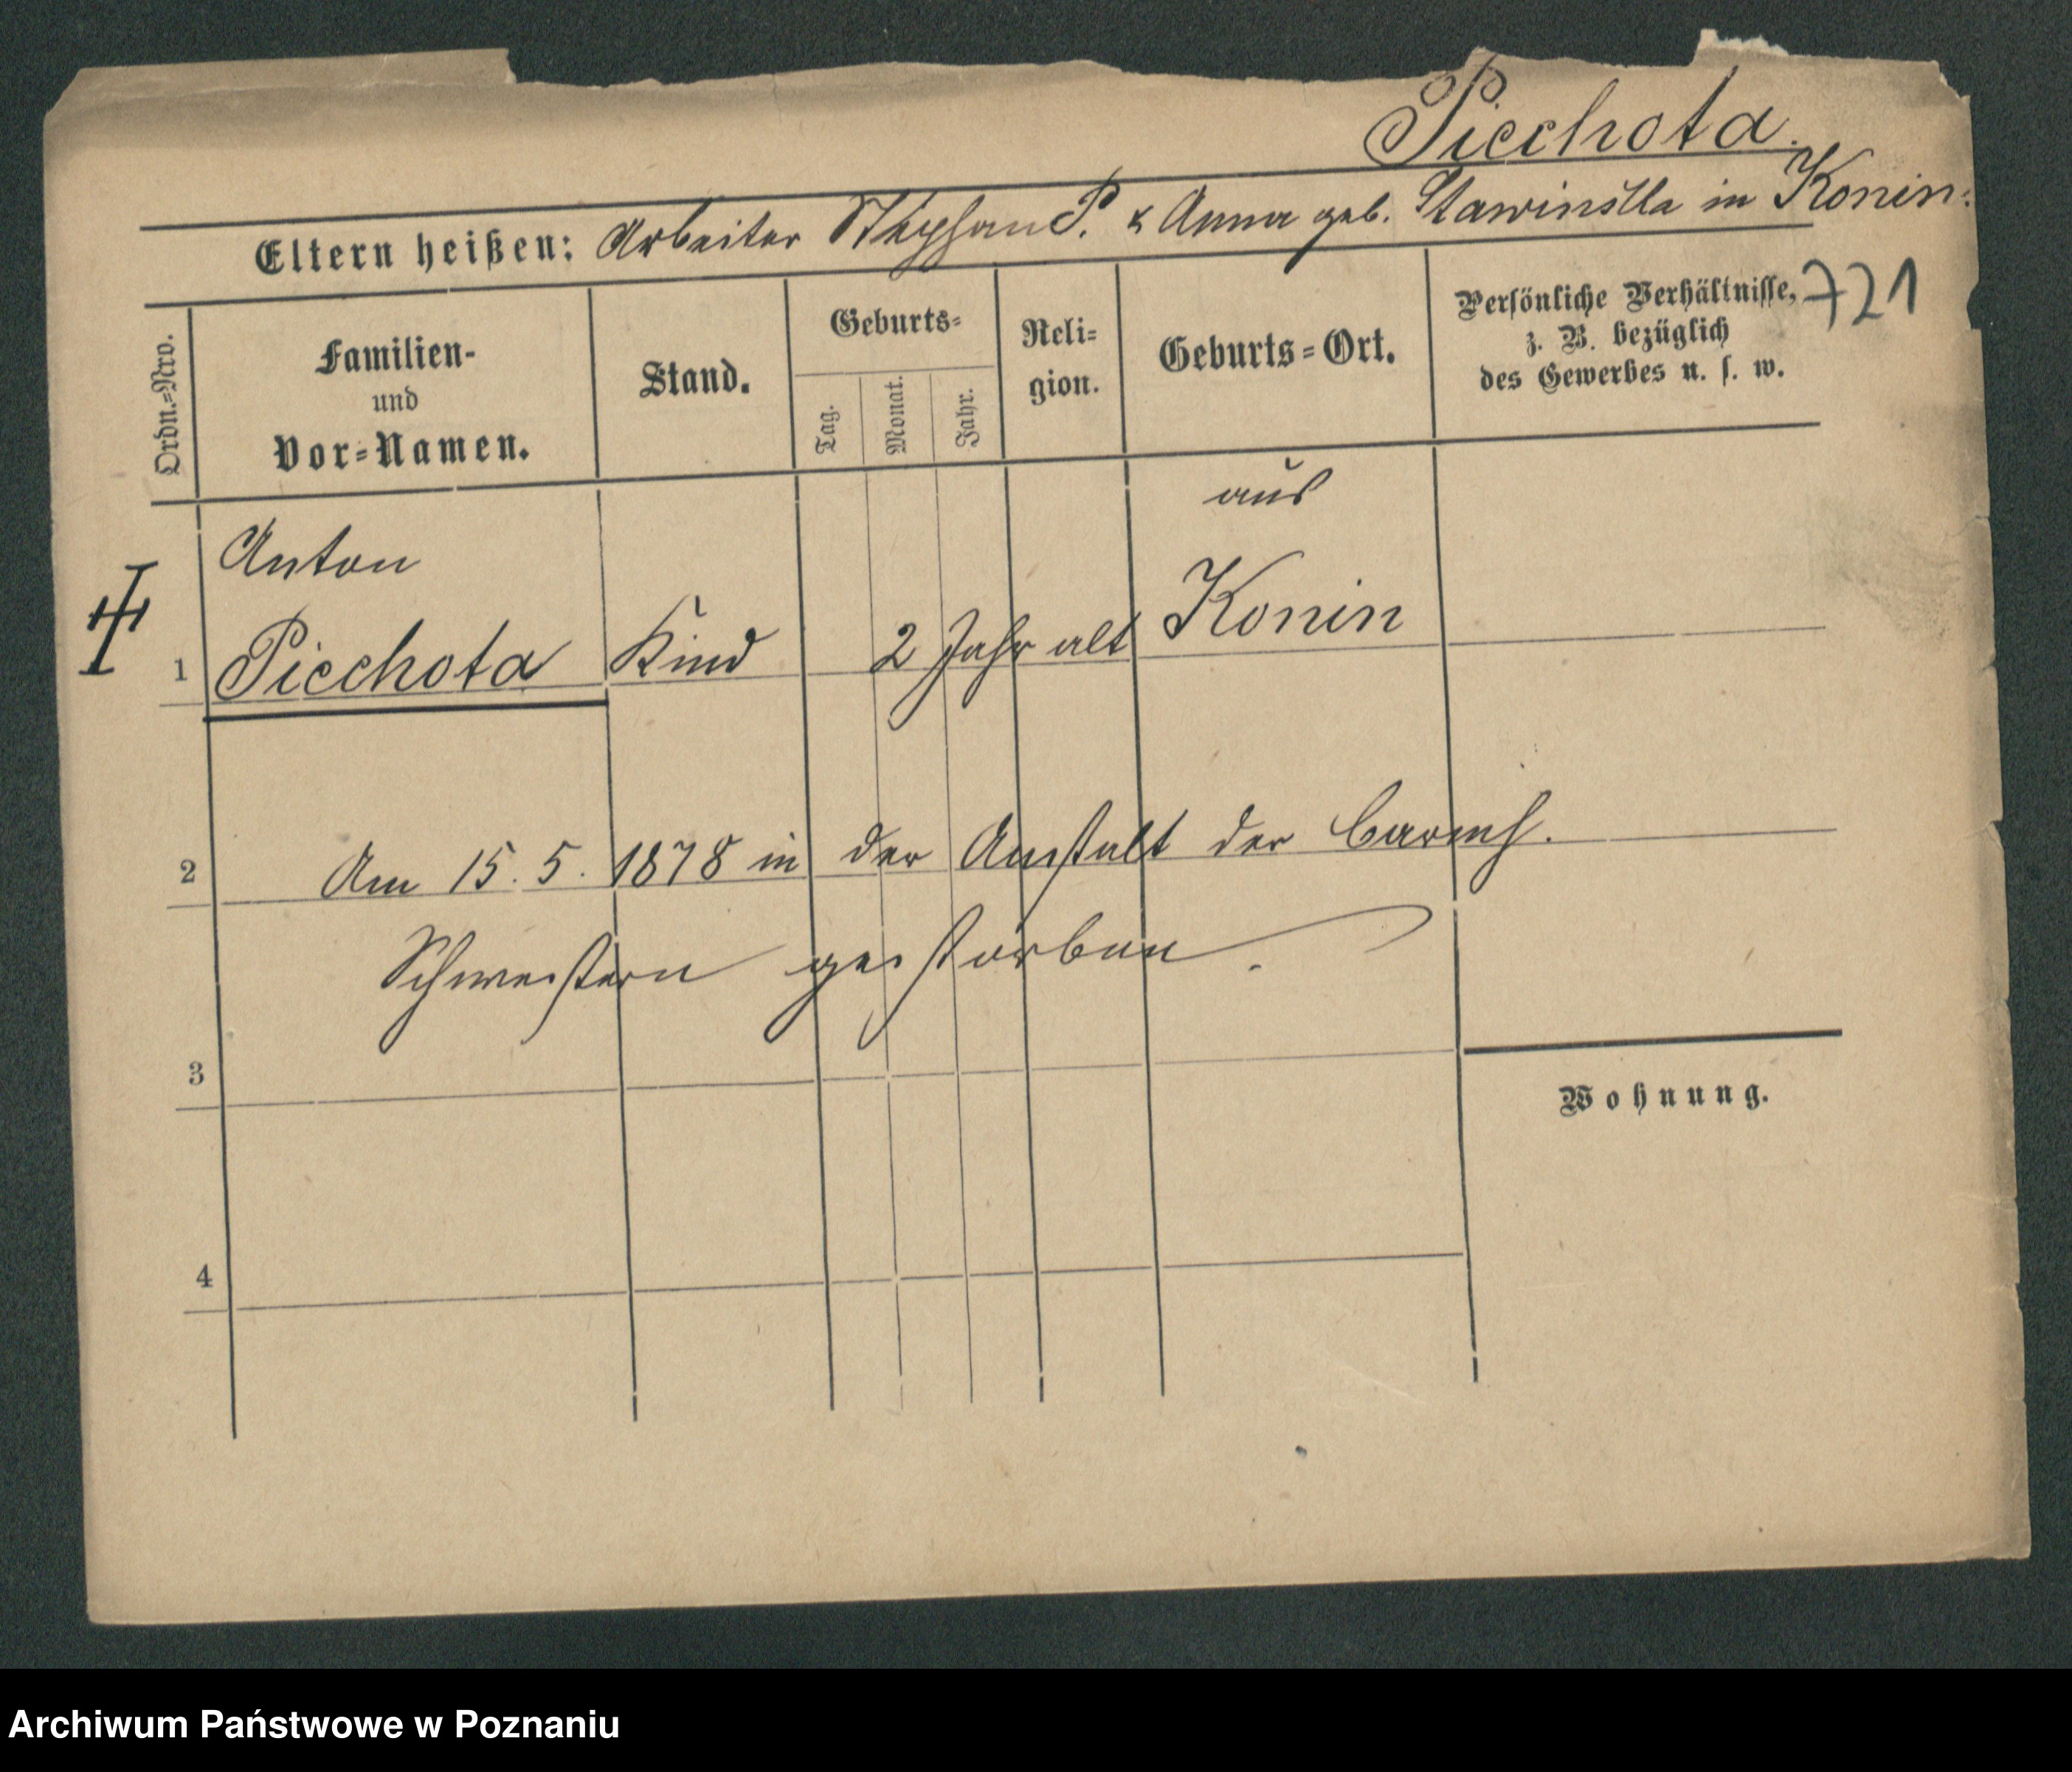 Piechota.
Eltern heißen: Arbeiter Stephan P. & Anna geb. in Konin.
721
Ordn.-Nro.
Familien-
und
Vor-Namen.
Stand.
Geburts-
Tag.
Monat.
Jahr.
Reli-
gion.
Geburts-Ort.
Persönliche Verhältnisse,
z. B. bezüglich
des Gewerbes u. s. w.
1
Anton
Piechota
Kind
2 Jahr alt
aus
Konin
2
Am 15. 5. 1878 in der Anstalt der barmh.
Schwestern gestorben.
3
Wohnung.
4
Archiwum Państwowe w Poznaniu